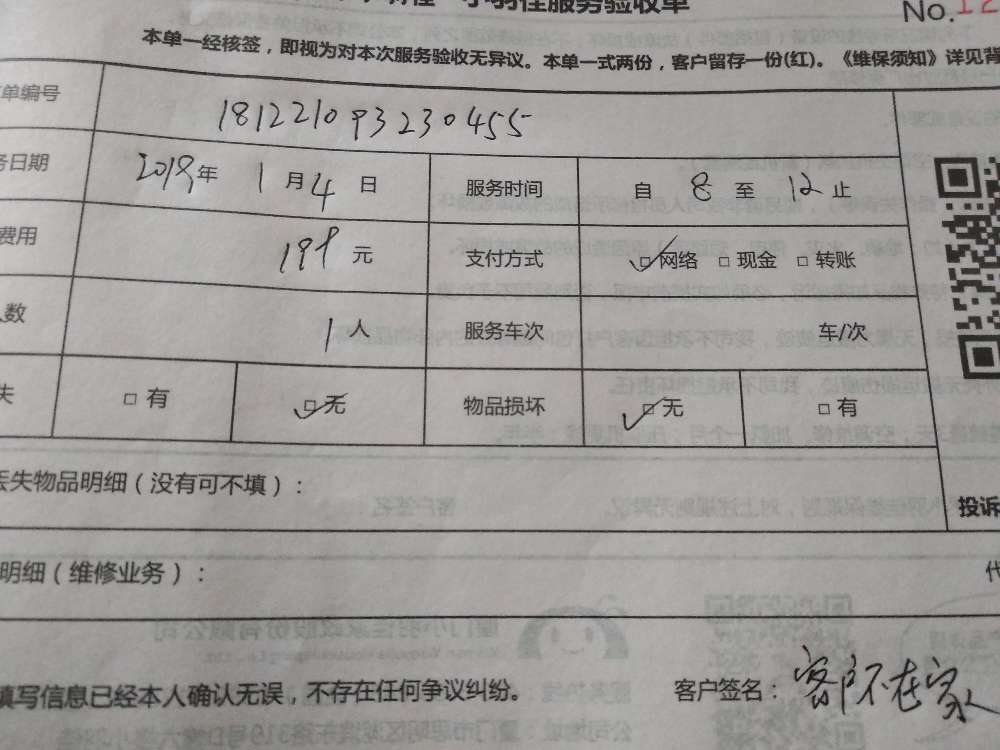 小羽佳服务验收单
No.12
本单一经核签，即视为对本次服务验收无异议。本单一式两份，客户留存一份(红)。《维保须知》详见背
单编号 181221093230455
务日期 2019年 1月4日 服务时间 自 8 至 12 止
费用 199元 支付方式 ☑网络 □现金 □转账
人数 1人 服务车次 车/次
失 □有 ☑无 物品损坏 ☑无 □有
丢失物品明细（没有可不填）：
投诉
明细（维修业务）：
填写信息已经本人确认无误，不存在任何争议纠纷。 客户签名：客户不在家